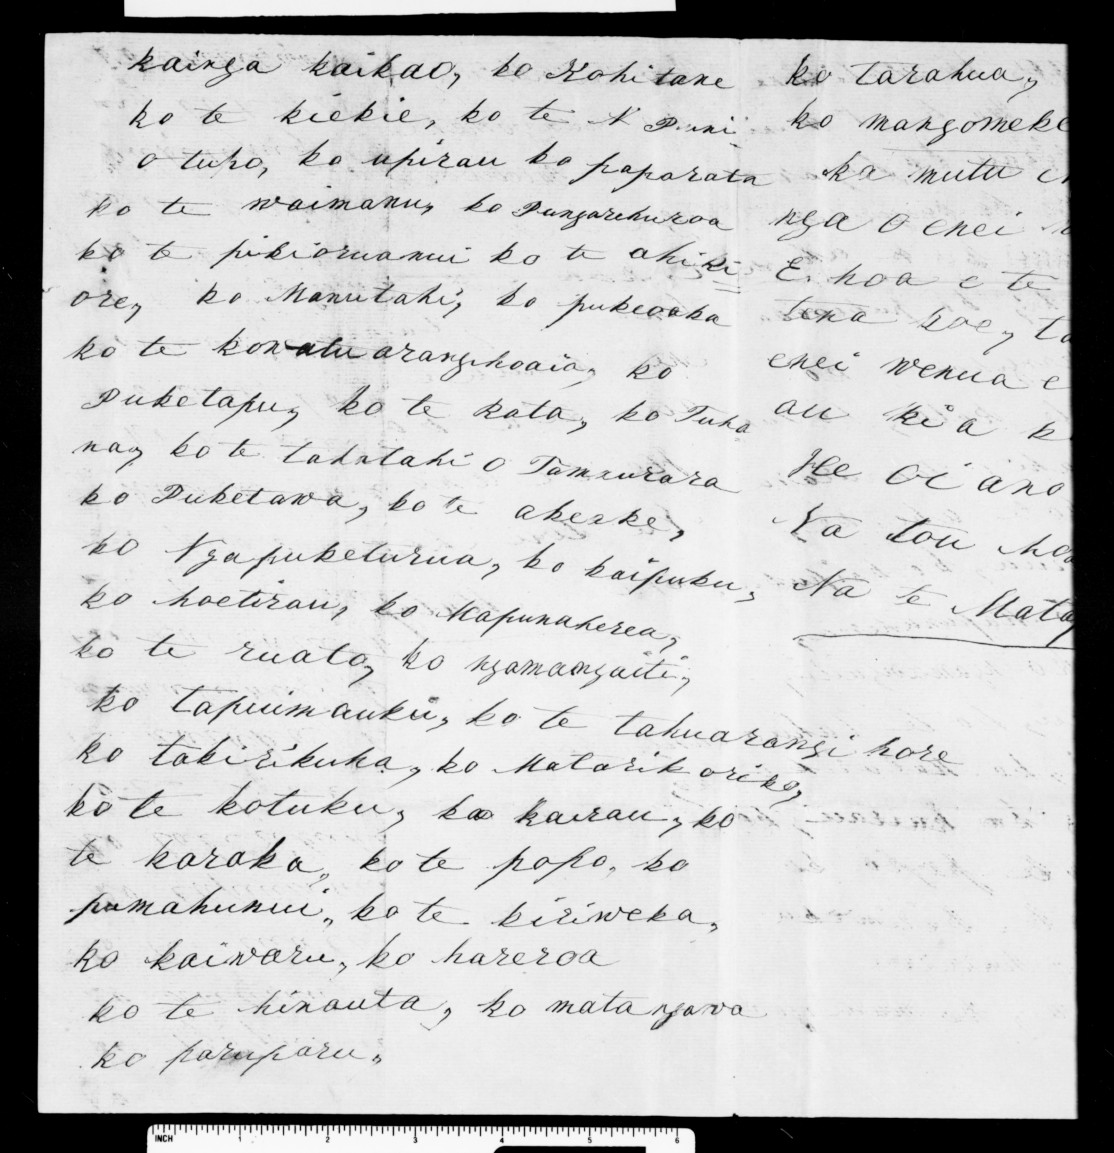 kainga kaikao, ko Kohitane
ko te kiekie, ko te N Puni
o tupo, ko upirau ko paparata
ko te waimanu, ko Pungarehuroa
ko te pikioruanui ko te ahiki
ore, ko Manutahi, ko pukeoaka
ko te konatuarangihoaia, ko
Puketapu, ko te Rata, ko Tuha
na, ko te tahutahi o
ko Puketawa, ko te akeake,
ko Ngapuketurua, ko kaipuku,
ko hoetirau, ko Mapunaherea,
ko te ruato, ko ngamangaiti,
ko tapuimauku, ko te tahuarangi hore
ko takirikuha, ko Matarikoriko,
ko te kotuku, ko kairau, ko
te karaka, ko te popo, ko
pumahunui, ko te kiriweka,
ko kaiwaru, ko hareroa
ko te hinauta, ko matangawa
ko paruparu,
ko tarahua,
ko mangomeke
ka mutu
nga o enei
E hoa e te
tena koe,
enei wenua e
au kia
He oi ano
Na tou hoa
Na te